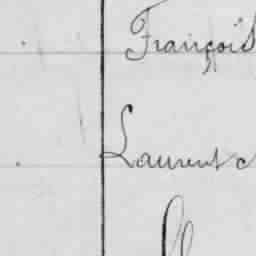 François
Laurent